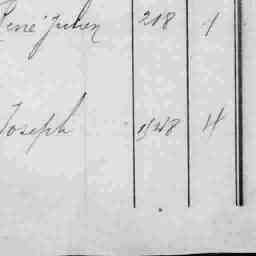 René Julien 218 1
Joseph 1948 4